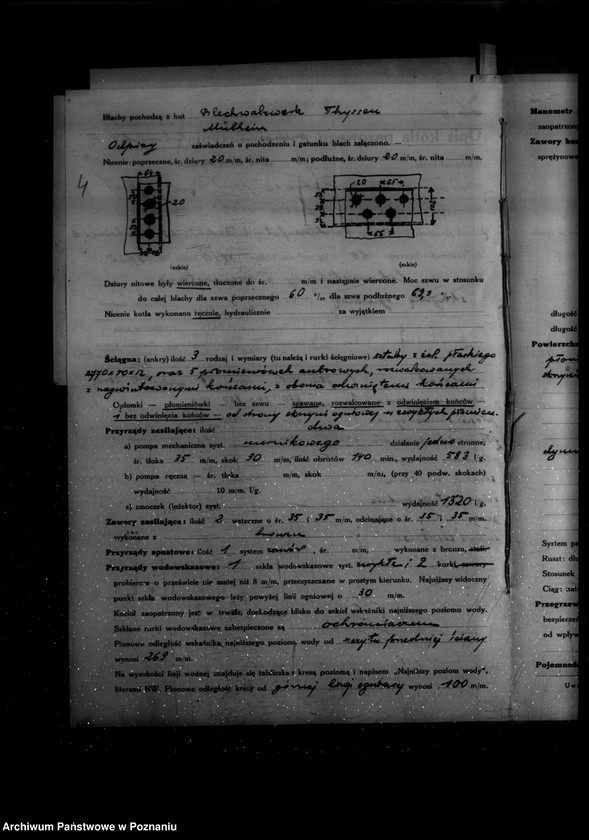 Blachy pochodzą z hut Blechwalzwerk Thyssen
Mülheim
Odpisy zaświadczeń o pochodzeniu i gatunku blach załączono. —
Nicenie: poprzeczne, śr. dziury 20 m/m, śr. nita m/m; podłużne, śr. dziury 20 m/m, śr. nita m/m.
4
64
20
20
65
65
(szkic)
(szkic)
Dziury nitowe były wiercone, tłoczone do śr. m/m i następnie wiercone. Moc szwu w stosunku
do całej blachy dla szwa poprzecznego 60 % dla szwa podłużnego 69,2 %
Nicenie kotła wykonano ręcznie, hydraulicznie za wyjątkiem
Ścięgna: (ankry) ilość 3 rodzaj i wymiary (tu należą i rurki ścięgniowe) sztaby z żel. płaskiego
2470x70x12, oraz 5 promieniówek ankrowych, rozwalcowanych
z nagwintowanymi końcami, z oboma odwiniętemi końcami
Opłomki — płomieniówki — bez szwu — spawane, rozwalcowane z odwinięciem końców —
i bez odwinięcia końców — od strony skrzyni ogniowej
Przyrządy zasilające: ilość dwa
a) pompa mechaniczna syst. nurnikowego działanie jedno stronne,
śr. tłoka 35 m/m, skok 90 m/m, ilość obrotów 140 min., wydajność 583 l/g.
b) pompa ręczna — śr. tłoka m/m, skok m/m, (przy 40 podw. skokach)
wydajność 10 m/m. l/g.
c) smoczek (inżektor) syst. wydajność 1320 l/g.
Zawory zasilające: ilość 2 wsteczne o śr. 35 i 35 m/m, odcinające o śr. 35 i 35 m/m.
wykonane z bronzu
Przyrządy spustowe: ilość 1 system zawór, śr. m/m, wykonane z bronzu, stali
Przyrządy wodowskazowe: 1 szkła wodowskazowe syst. zwykłe i 2 kurki, zawory
probiercze o prześwicie nie mniej niż 8 m/m, przeczyszczane w prostym kierunku. Najniższy widoczny
punkt szkła wodowskazowego leży powyżej linji ogniowej o 30 m/m.
Kocioł zaopatrzony jest w trwałe, dochodzące blisko do szkieł wskaźniki najniższego poziomu wody.
Szklane rurki wodowskazowe zabezpieczone są ochraniaczem
Pionowa odległość wskaźnika najniższego poziomu wody od szczytu przedniej ściany
wynosi 269 m/m.
Na wysokości linji wodnej znajduje się tabliczka z kresą poziomą i napisem „Najniższy poziom wody",
literami NW. Pionowa odległość kresy od górnej linji ogniowej wynosi 100 m/m.
Manometr
zaopatrzony
Zawory bez
sprężynowe
długość
długość
Powierzch
System pa
Ruszt: dłu
Stosunek
Ciąg: nat
Przegrzew
bezpieczeń
od wpływ
Pojemność
Archiwum Państwowe w Poznaniu